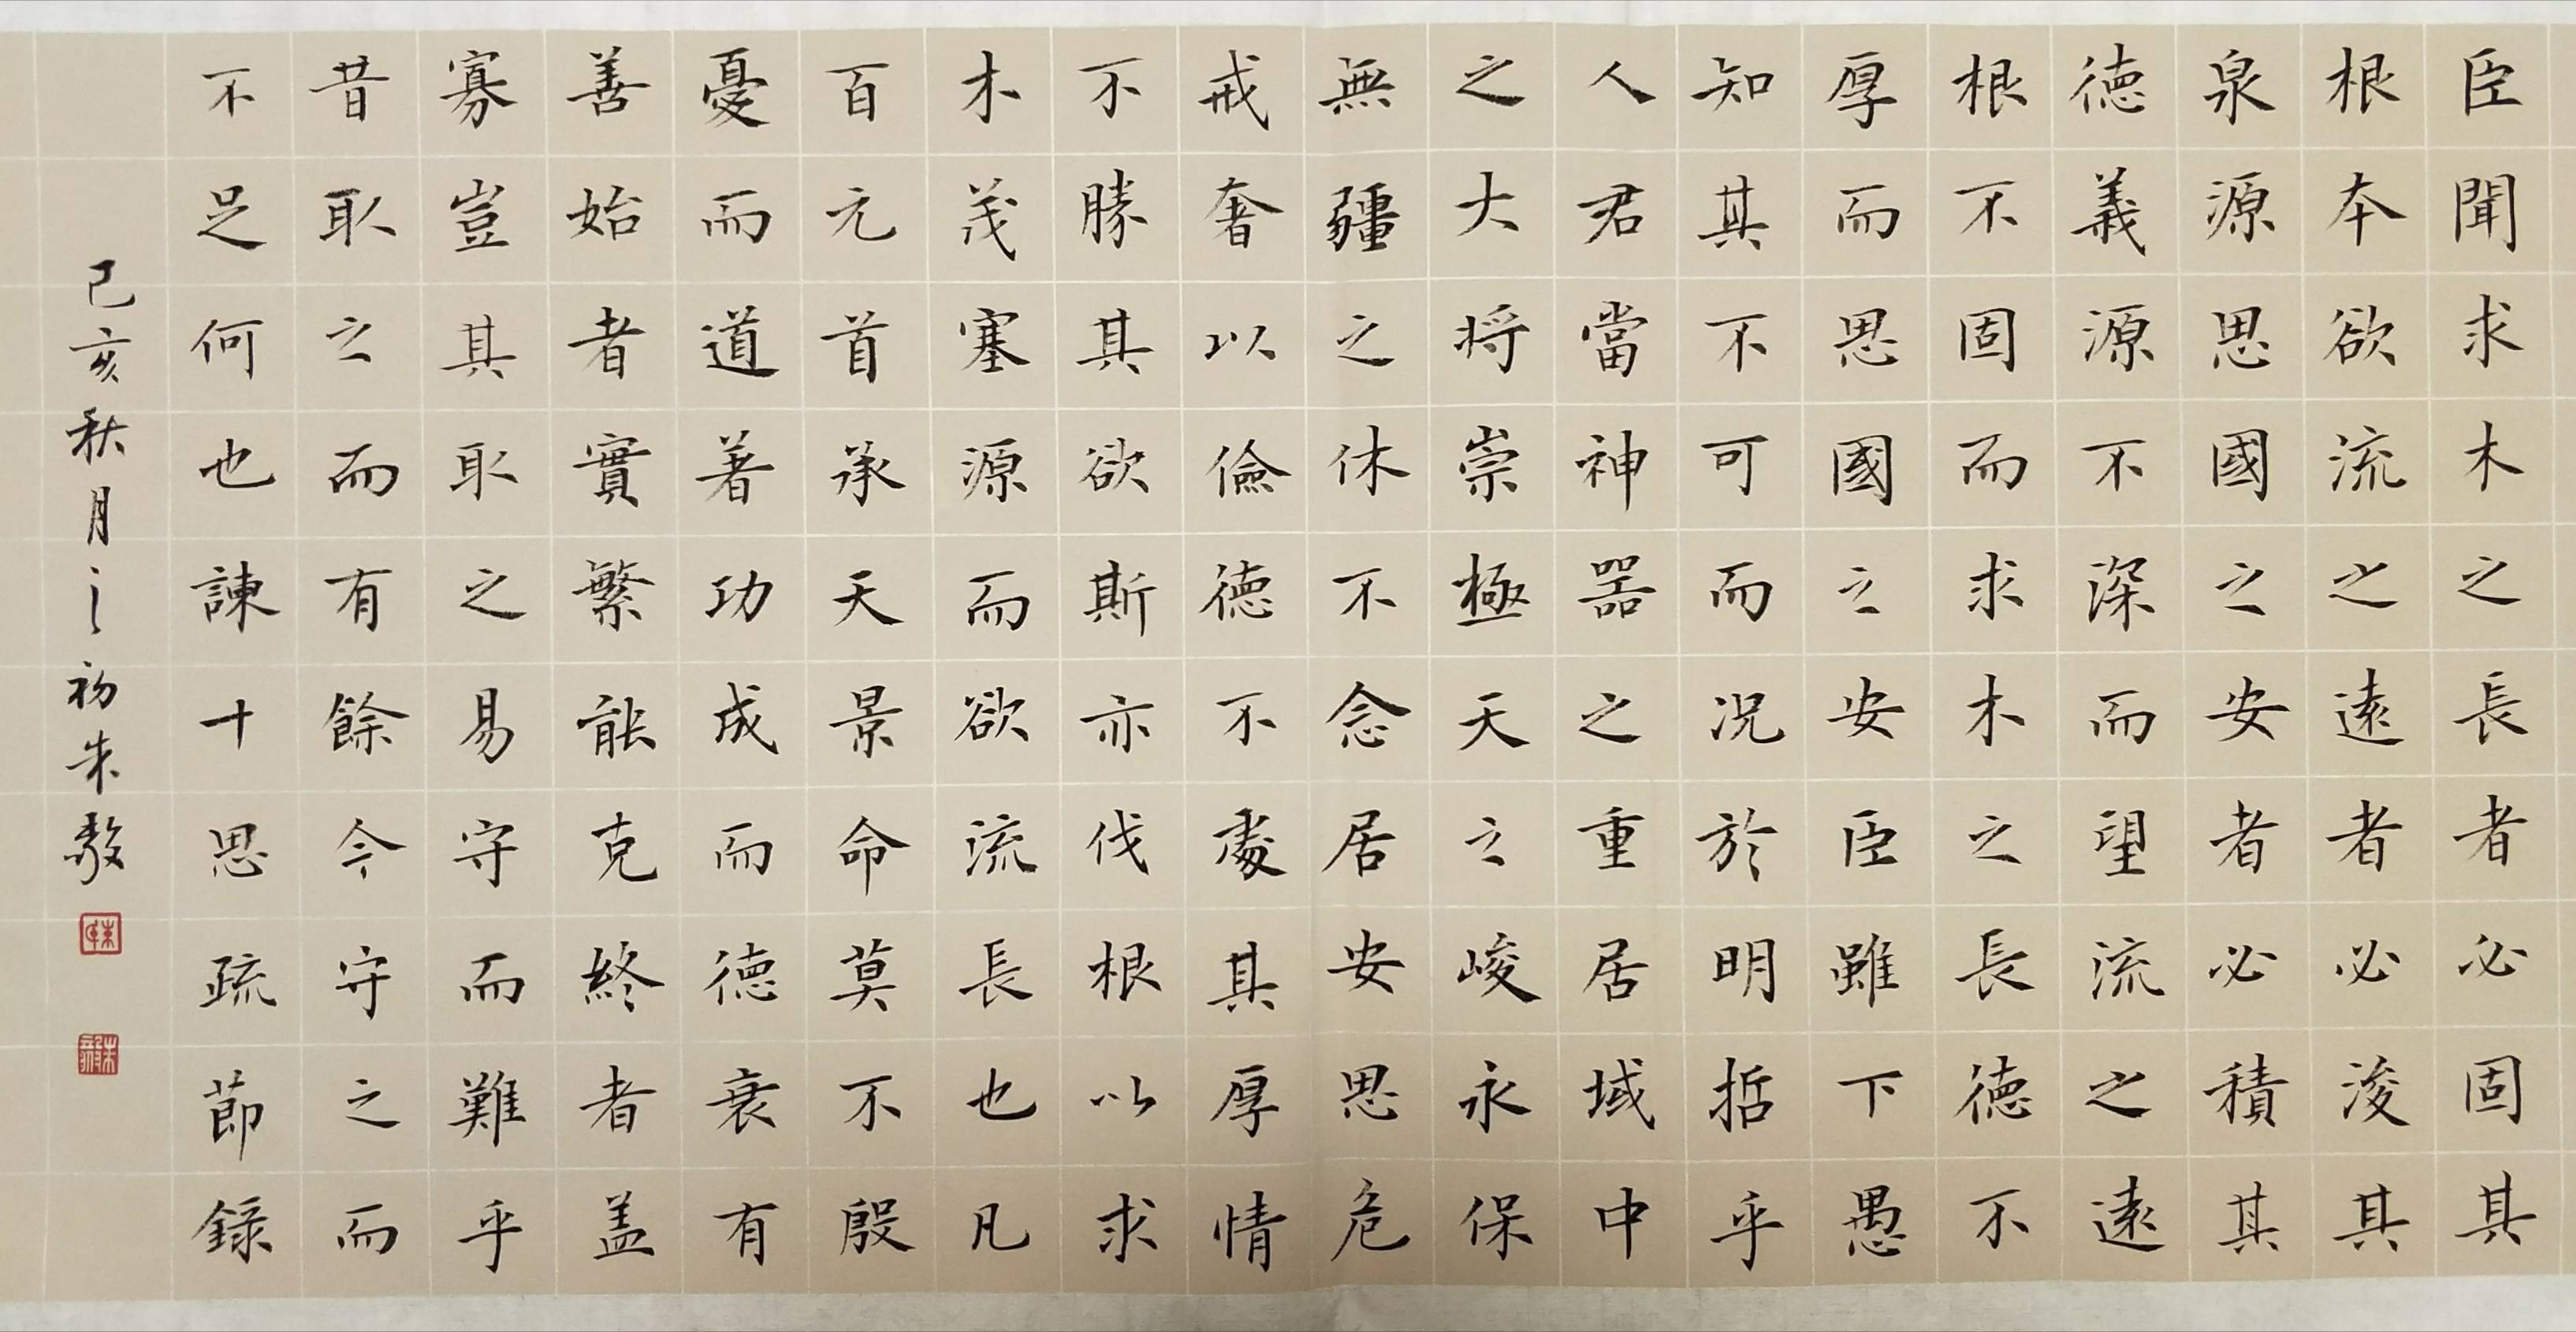 臣聞求木之長者必固其
根本欲流之遠者必浚其
泉源思國之安者必積其
德義源不深而望流之遠
根不固而求木之長德不
厚而思國之安臣雖下愚
知其不可而况於明哲乎
人君當神器之重居域中
之大将崇極天之峻永保
無疆之休不念居安思危
戒奢以儉德不處其厚情
不勝其欲斯亦伐根以求
木茂塞源而欲流長也凡
百元首承天景命莫不殷
憂而道著功成而德衰有
善始者實繁能克終者盖
寡豈其取之易守之難乎
昔取之而有餘今守之而
不足何也諫十思疏節錄
己亥秋月之初朱敬